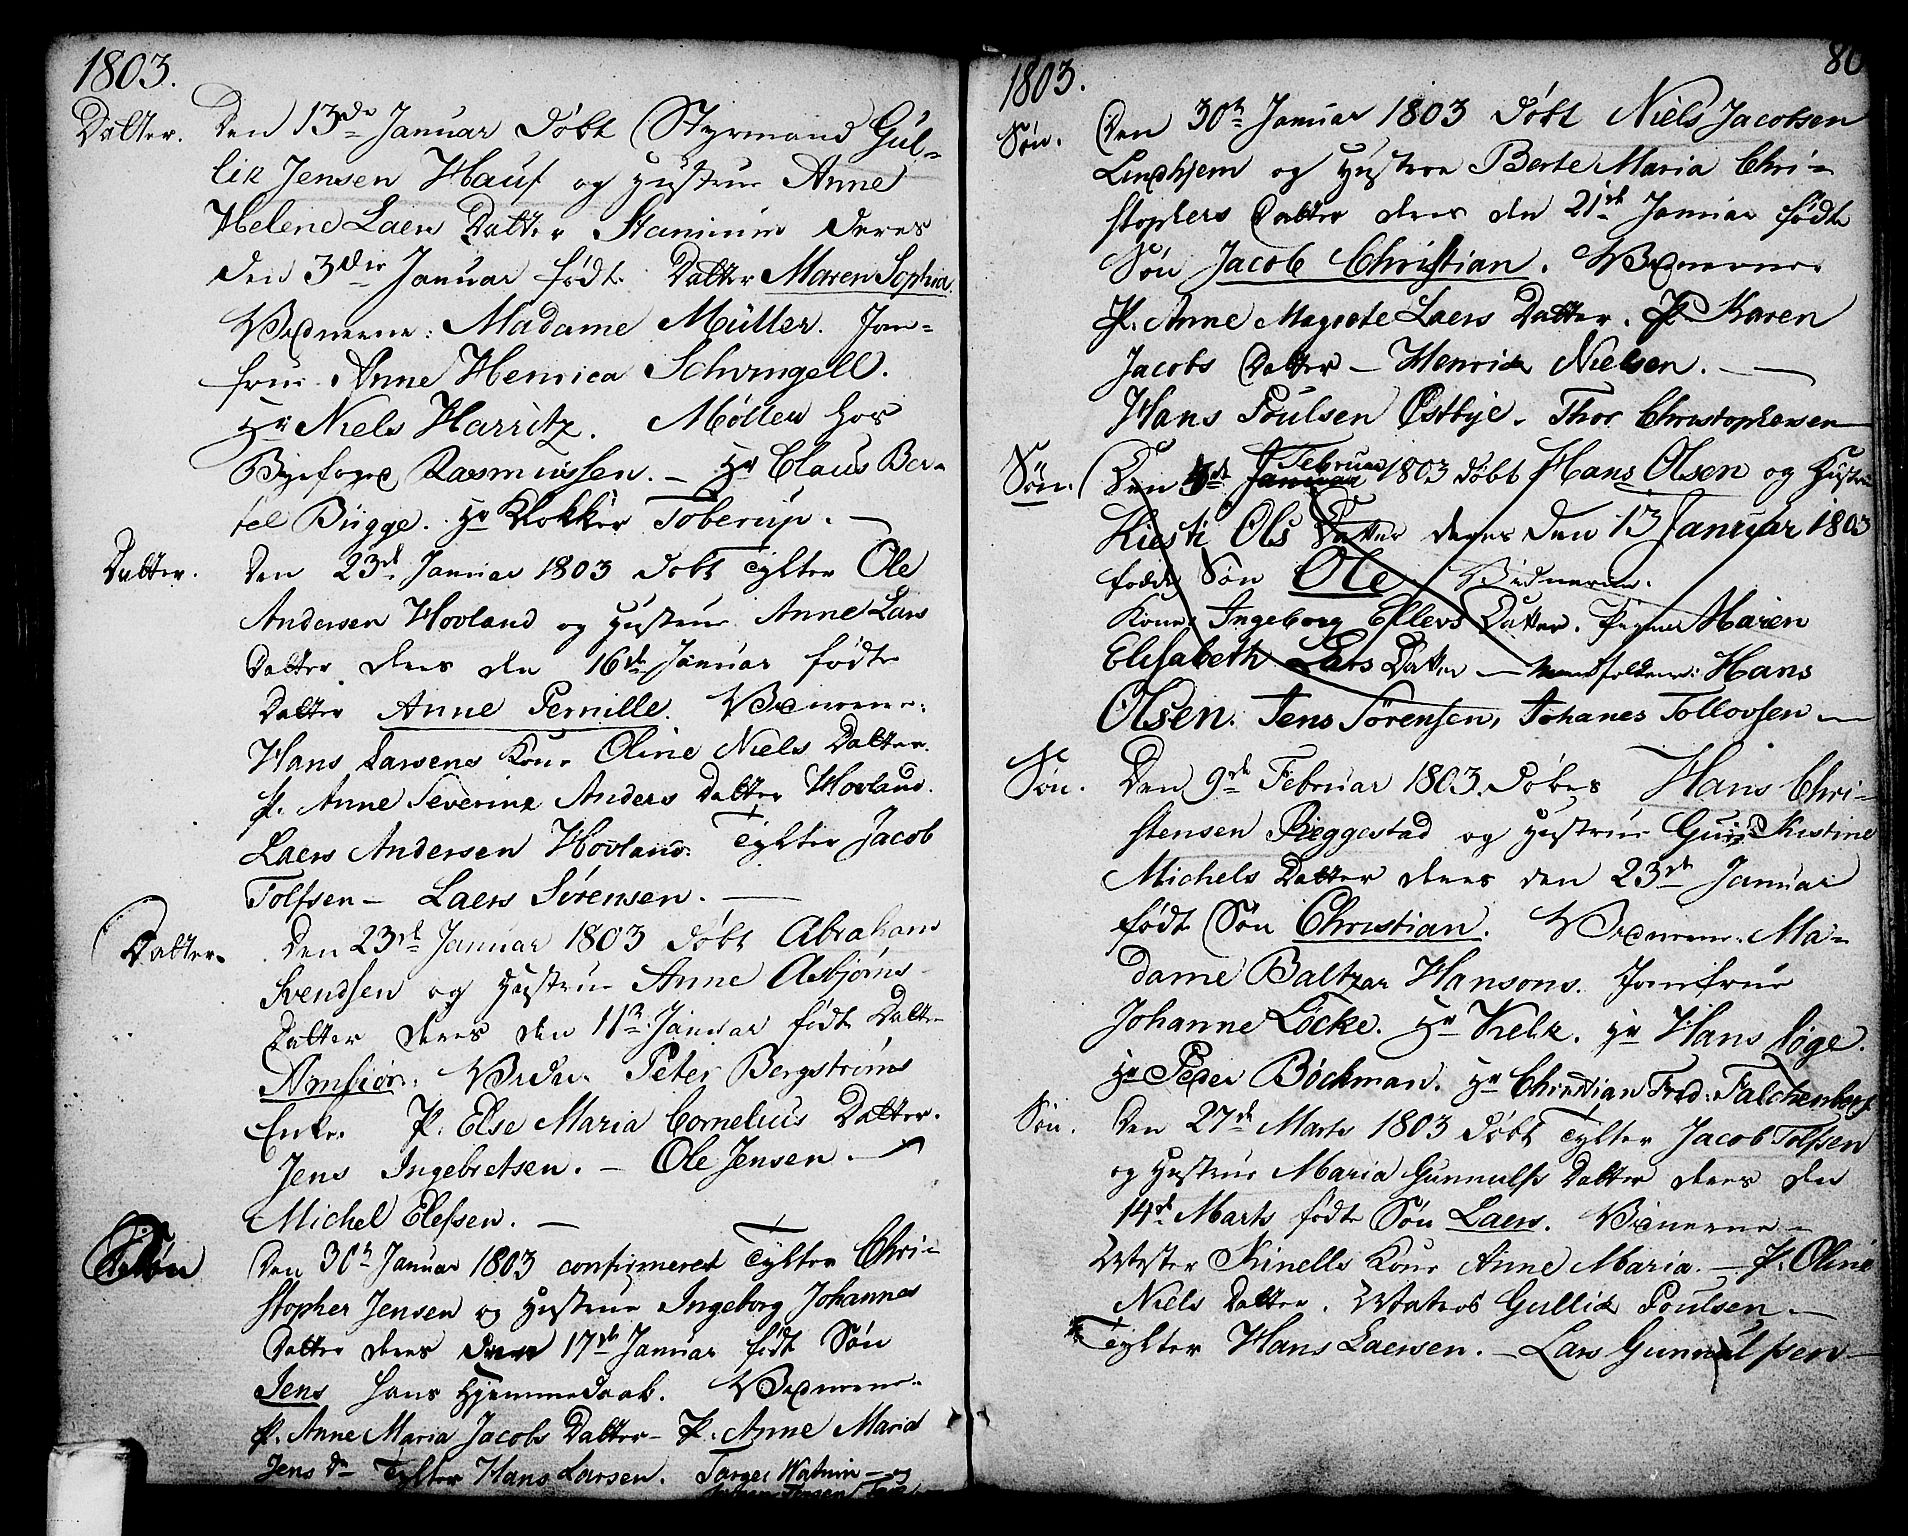 1803.
Datter. Den 13de Januar döbt Styrmand Gul-
lik Jensen Hauf og Hustrue Anne
Helene Laers Datter deres
den 3die Januar födte Datter Maren Sophia
Vidnerne: Madame Müller. Jom-
frue Anne Henrica Schvingell.
Hr Niels Harritz. Möller hos
Byefoged Rasmussen. – Hr Claus Ber-
tel Bügge. Hr Klokker Toberup. –
Datter. Den 23de Januar 1803 döbt Tylter Ole
Andersen Hovland og Hustrue Anne Lars
Datter deres den 16de Januar födte
Datter Anne Pernille. Vidnerne:
Hans Larsens Kone Oline Niels Datter.
P. Anne Severine Anders Datter Hovland.
Laers Andersen Hovland. Tylter Jacob
Tolfsen – Laers Sörensen. –
Datter. Den 23de Januar 1803 döbt Abraham
Svendsen og Hustrue Anne Asbjörns
Datter deres den 11te Januar födte Datter
Vidn. Peter Bergströms
Enke. P. Else Maria Cornelius Datter.
Jens Ingebretsen. – Ole Jensen. –
Michel Elefsen. –
Sön Den 30te Januar 1803 confirmeret Tylter Chri-
stopher Jensen og Hustrue Ingeborg Johannes
Datter deres den 17de Januar födte Sön
Jens hans Hjemmedaab. Vidnerne.
P. Anne Maria Jacobs Datter – P. Anne Maria
Jens Dr Tylter Hans Larsen. – og
80
1803.
Sön. Den 30te Januar 1803 döbt Niels Jacobsen
Lindhjem og Hustroe Berte Maria Chri-
stophers Datter deres den 21de Januar födte
Sön Jacob Christian. Vidnerne.
P. Anne Magrete Laers Datter. P. Karen
Jacobs Datter – Henrik Nielsen. –
Hans Poulsen Östbye. Thor Christophersen
Sön. Den de Januar Februar 1803 döbt Hans Olsen og Hustrue
Kiesti Ols Datter deres den 13 Januar 1803
födde Sön Ole. Vidnerne.
Kone Ingeborg Ellevs Datter. Pigene Maren
Elisabeth Lars Datter – Mandfolkene: Hans
Olsen. Jens Sörensen, Johanes Tollovsen –
Sön. Den 9de Februar 1803. döbes Hans Chri-
stensen Rieggestad og Hustrue Kistine
Michels Datter deres den 23de Januar
födte Sön Christian. Vidnerne. Ma-
dame Baltzar Hansons. Jomfrue
Johanne Löcke. Hr Kielk. Hr Hans Löge.
Hr Peder Böckman. Hr Christian Fred: Falchenberg
Sön. Den 27de Marts 1803 döbt Tylter Jacob Tolfsen
og Hustrue Maria Gunnulfs Datter deres den
14de Marts födte Sön Laers. Vidnerne –
Kone Anne Maria. – P. Oline
Niels Datter. Matros Gullik Poulsen. –
Tylter Hans Laersen. – Lars Gunnulfsen –